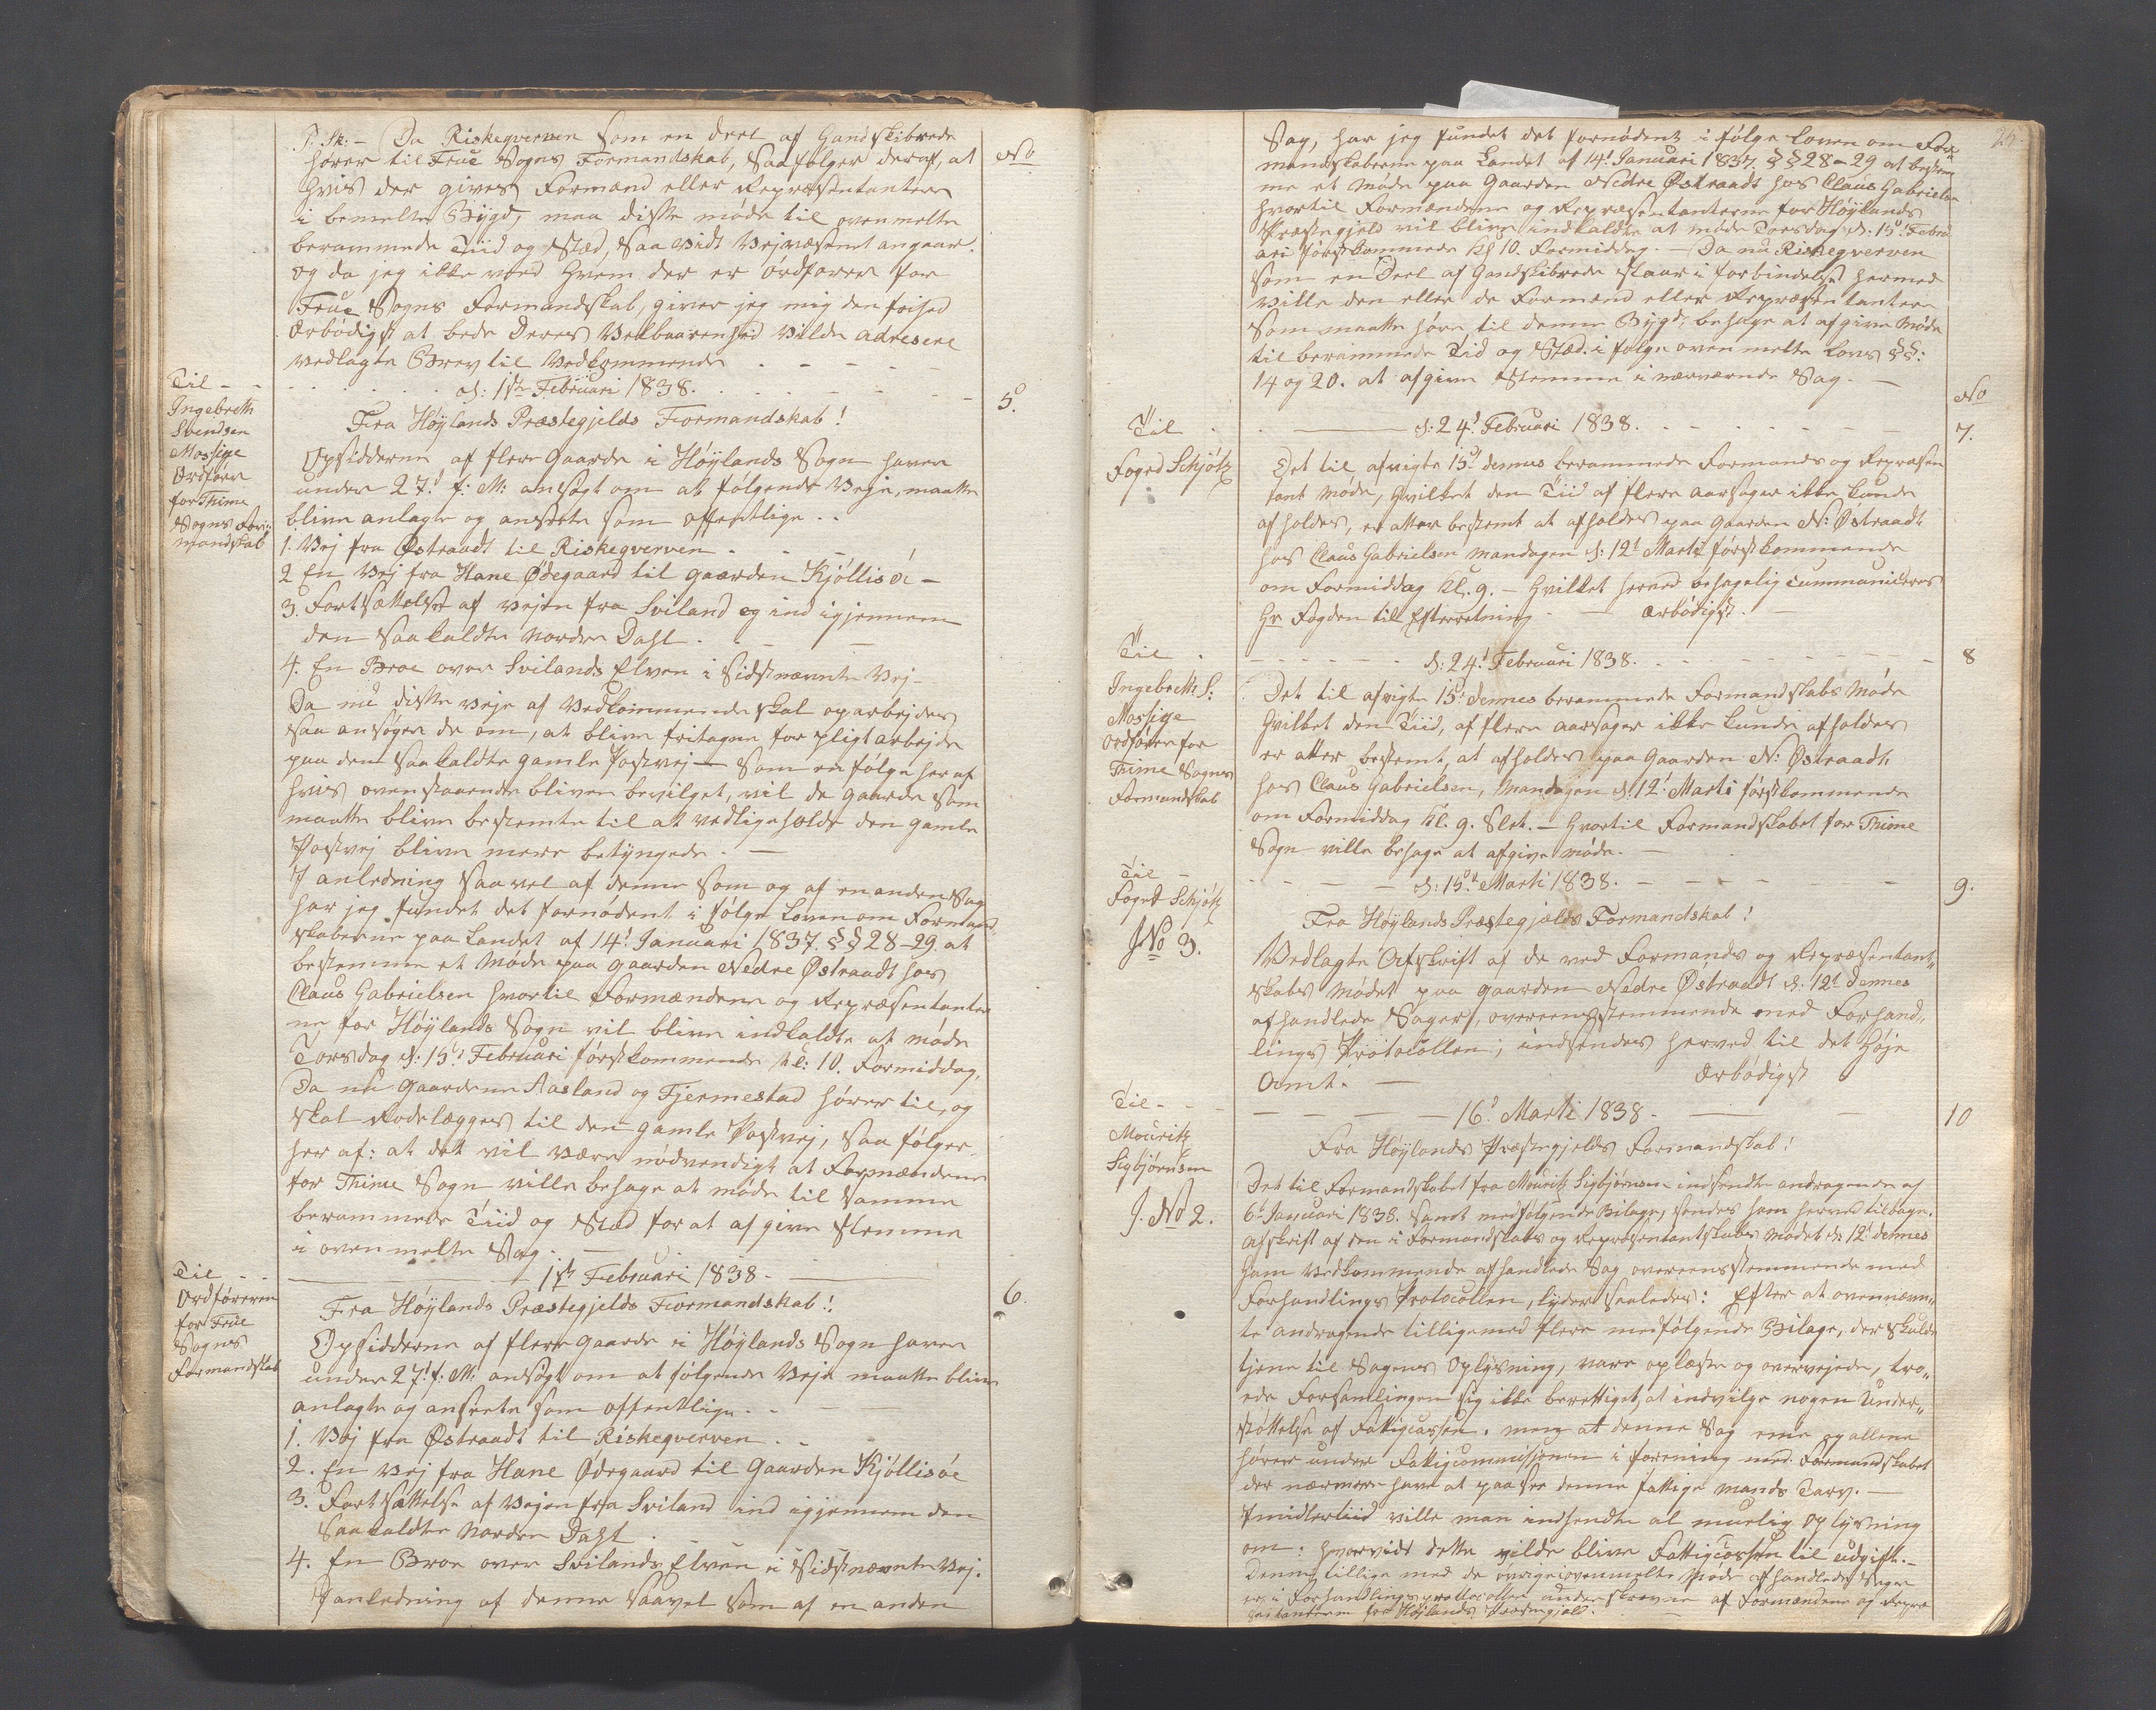 P: Sk: – Da Riskeqverven som en deel af Gandskibrede
hører til Frue Sogns Formandskab, saa følger deraf, at
hvis der gives Formænd eller Repræsentantere
i bemelte Bÿgd, maa disse møde til ovenmelte
berammede Tiid og Stæd, saa vidt Vejvæsenet angaar.
og da jeg ikke veed hvem der er Ordfører for
Frue Sogns Formandskab, giver jeg mig den frihed
ærbödigst at bede Deres Velbaarenhed vilde adresere
vedlagte Brev til Vedkommende
No
Til
Ingebreth
Svendsen
Mossige
Ordfører
for Thime
Sogns For:
mandskab
d: 1ste Februari 1838.
5.
Fra Höÿlands Præstegjelds Formandskab!
Opsidderne af flere Gaarde i Höÿlands Sogn haver
under 27d f: M: ansøgt om at følgende Veje, maatte
blive anlagte og ansete som offentlige..
1. Vej fra Østraadt til Riskeqverven
2 En Vej fra Hane Ødegaard til gaarden Kjöllisöe –
3. Fortsættelse af Vejen fra Sviland og ind igjennem
den saakaldte Nordre Dahl.
4. En Broe over Svilands Elven i Sidstnævnte Vej –
Da nu disse Veje af Vedkommende skal oparbejdes
saa ansøger de om, at blive fritagne for pligtarbejde
paa den saakaldte gamle Postvej – Som en følge her af
hvis ovenstaaende bliver bevilget, vil de Gaarde som
maatte blive bestemte til at vedligeholde den gamle
Postvej blive mere betÿngede. –
I anledning saavel af denne som og af en anden Sag
har jeg fundet det fornødent i følge Loven om Formand,
skaberne paa Landet af 14d Januari 1837. §§ 28–29. at
bestemme et Møde paa gaarden Nedre Østraadt hos
Claus Gabrielsen hvortil Formændene og Repræsentanter
ne for Höÿlands Sogn vil blive indkaldte at møde
Torsdag d: 15d Februari førstkommende Kl: 10. Formiddag.
Da nu Gaardene Aasland og Fjermestad hører til, og
skal Rodelægges til den gamle Postvej, saa følger
her af: at det vil være nødvendigt at Formændene
for Thime Sogn ville behage at møde til samme
berammede Tiid og Stæd for at afgive Stemme
i ovenmelte Sag. –
Til
Ordføreren
for Frue
Sogns
Formandskab
1ste Februari 1838.
6.
Fra Höÿlands Præstegjelds Formandskab!
Opsidderne af flere Gaarde i Höÿlands Sogn haver
under 27d f: M: ansøgt om at følgende Veje maatte blive
anlagte og ansete som offentlige.
1. Vej fra Østraadt til Riskeqverven.
2. En Vej fra Hane Ødegaard til Gaarden Kjöllisöe
3. Fortsættelse af Vejen fra Sviland ind igjennem den
saakaldte Nordre Dahl
4. En Broe over Svilands Elven i Sidstnævnte Vej.
I anledning af denne saavel som af en anden
Sag, har jeg fundet det fornødent i følge Loven om For¬
mandskaberne paa Landet af 14d Januari 1837 §§ 28–29 at bestem
me et Møde paa Gaarden Nedre Østraadt hos Claus Gabrielsen
hvortil Formændene og Repræsentanterne for Höÿlands
Præstegjeld vil blive indkaldte at møde Torsdag d: 15d Febru
ari førstkommende Kl 10. Formiddag. – Da nu Riskeqverven
som en Deel af Gandskibrede staar i forbindelse hermed
ville den eller de Formænd eller Repræsentantere
som maatte høre til denne Bÿgd, behage at afgive Møde
til berammede Tid og Stæd. i følge ovenmelte Lovs §§:
14 og 20. at afgive Stemme i nærværende Sag. –
No
Til
Foged Schjötz
d: 24d Februari 1838.
7.
Det til afvigte 15d dennes berammede Formands og Repræsen
tant Møde, hvilket den Tiid af flere Aarsager ikke kunde
afholdes, er atter bestemt at afholdes paa Gaarden N: Østraadt
hos Claus Gabrielsen mandagen d: 12t Marti førstkommende
om Formiddag Kl. 9. – hvilket herved behagelig Cummuniceres
Hr Fogden til Efterretning. – ærbødigst. –
Til
Ingebreth S:
Mossige
Ordfører for
Thime Sogns
Formandskab
d: 24d Februari 1838.
8
Det til afvigte 15d dennes berammede Formandskabs Møde
hvilket den Tiid, af flere aarsager ikke kunde afholdes
er atter bestemt, at afholdes paa Gaarden N: Østraadt
hos Claus Gabrielsen, Mandagen d: 12t Marti førstkommende
om Formiddag Kl. 9. Slet. – hvortil Formandskabet for Thime
Sogn ville behage at afgive møde. –
Til
Foged Schjötz
J No 3.
d: 15d Marti 1838.
9.
Fra Höÿlands Præstegjelds Formandskab!
Vedlagte Afskrift af de ved Formands og Repræsentant„
skabs Mødet paa gaarden Nedre Østraadt d. 12t dennes
afhandlede Sager, overeensstemmende med Forhand„
lings Protocollen, indsendes herved til det høje
Amt. – ærbødigst
Til
Mouritz
Sigbjörnsen
J. No 2.
16d Marti 1838.
10
Fra Höÿlands Præstegjelds Formandskab!
Det til Formandskabet fra Mouritz Sigbjörnsen indsendte andragende af
6d Januari 1838. samt medfølgende Bilage, sendes ham herved tilbage.
Afskrift af den i Formandskabs og Repræsentantskabs Mødet d: 12t dennes
ham vedkommende afhandlede Sag overeensstemmende med
Forhandlings Protocollen, lyder saaledes: Efter at ovennævn„
te andragende tilligemed flere medfølgende Bilage, der skulde
tjene til Sagens Oplysning, vare oplæste og overvejede, tro„
ede Forsamlingen sig ikke berettiget, at indvilge nogen Under„
støttelse af Fattigcassen. meng at denne Sag ene og allene
hører under Fattigcommisjonen i forening med Formandskabet
der nærmere have at paasee denne fattige Mands Tarv. –
Imidlertiid ville man indhendte al muelig Oplysning
om: hvorvidt dette vilde blive Fattigcassen til udgift. –
Denne tillige med de øvrige i ovenmelte Møde afhandlede Sager
er i Forhandlingsprottocollen underskrevne af Formændene og Repræ
sentanterne for Höÿlands Præstegjeld.